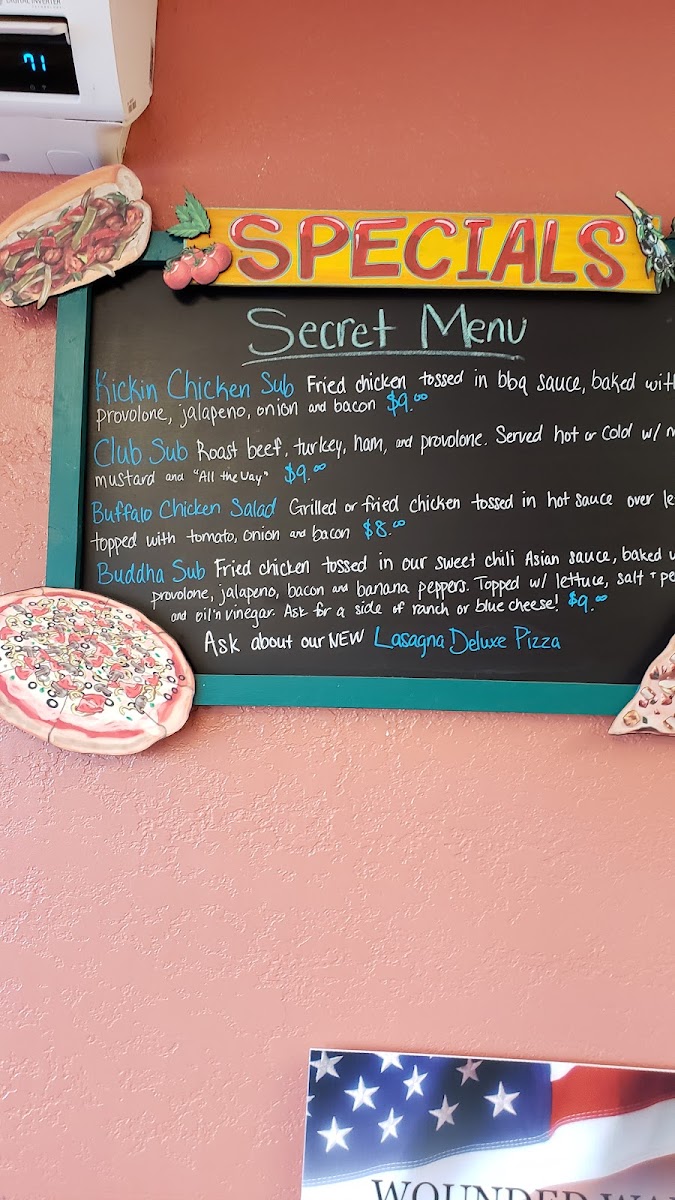 DIGITAL INVERTER
71
SPECIALS
Secret Menu
Kickin Chicken Sub Fried chicken tossed in bbq sauce, baked
provolone, jalapeno, onion and bacon $9.00
Club Sub Roast beef, turkey, ham, and provolone. Served hot or cold w/
mustard and "All the Way" $9.00
Buffalo Chicken Salad Grilled or fried chicken tossed in hot sauce over
topped with tomato, onion and bacon $8.00
Buddha Sub Fried chicken tossed in our sweet chili Asian sauce, baked
provolone, jalapeno, bacon and banana peppers. Topped w/ lettuce, salt +
and oil'n vinegar. Ask for a side of ranch or blue cheese! $9.00
Ask about our NEW Lasagna Deluxe Pizza
WOUNDED